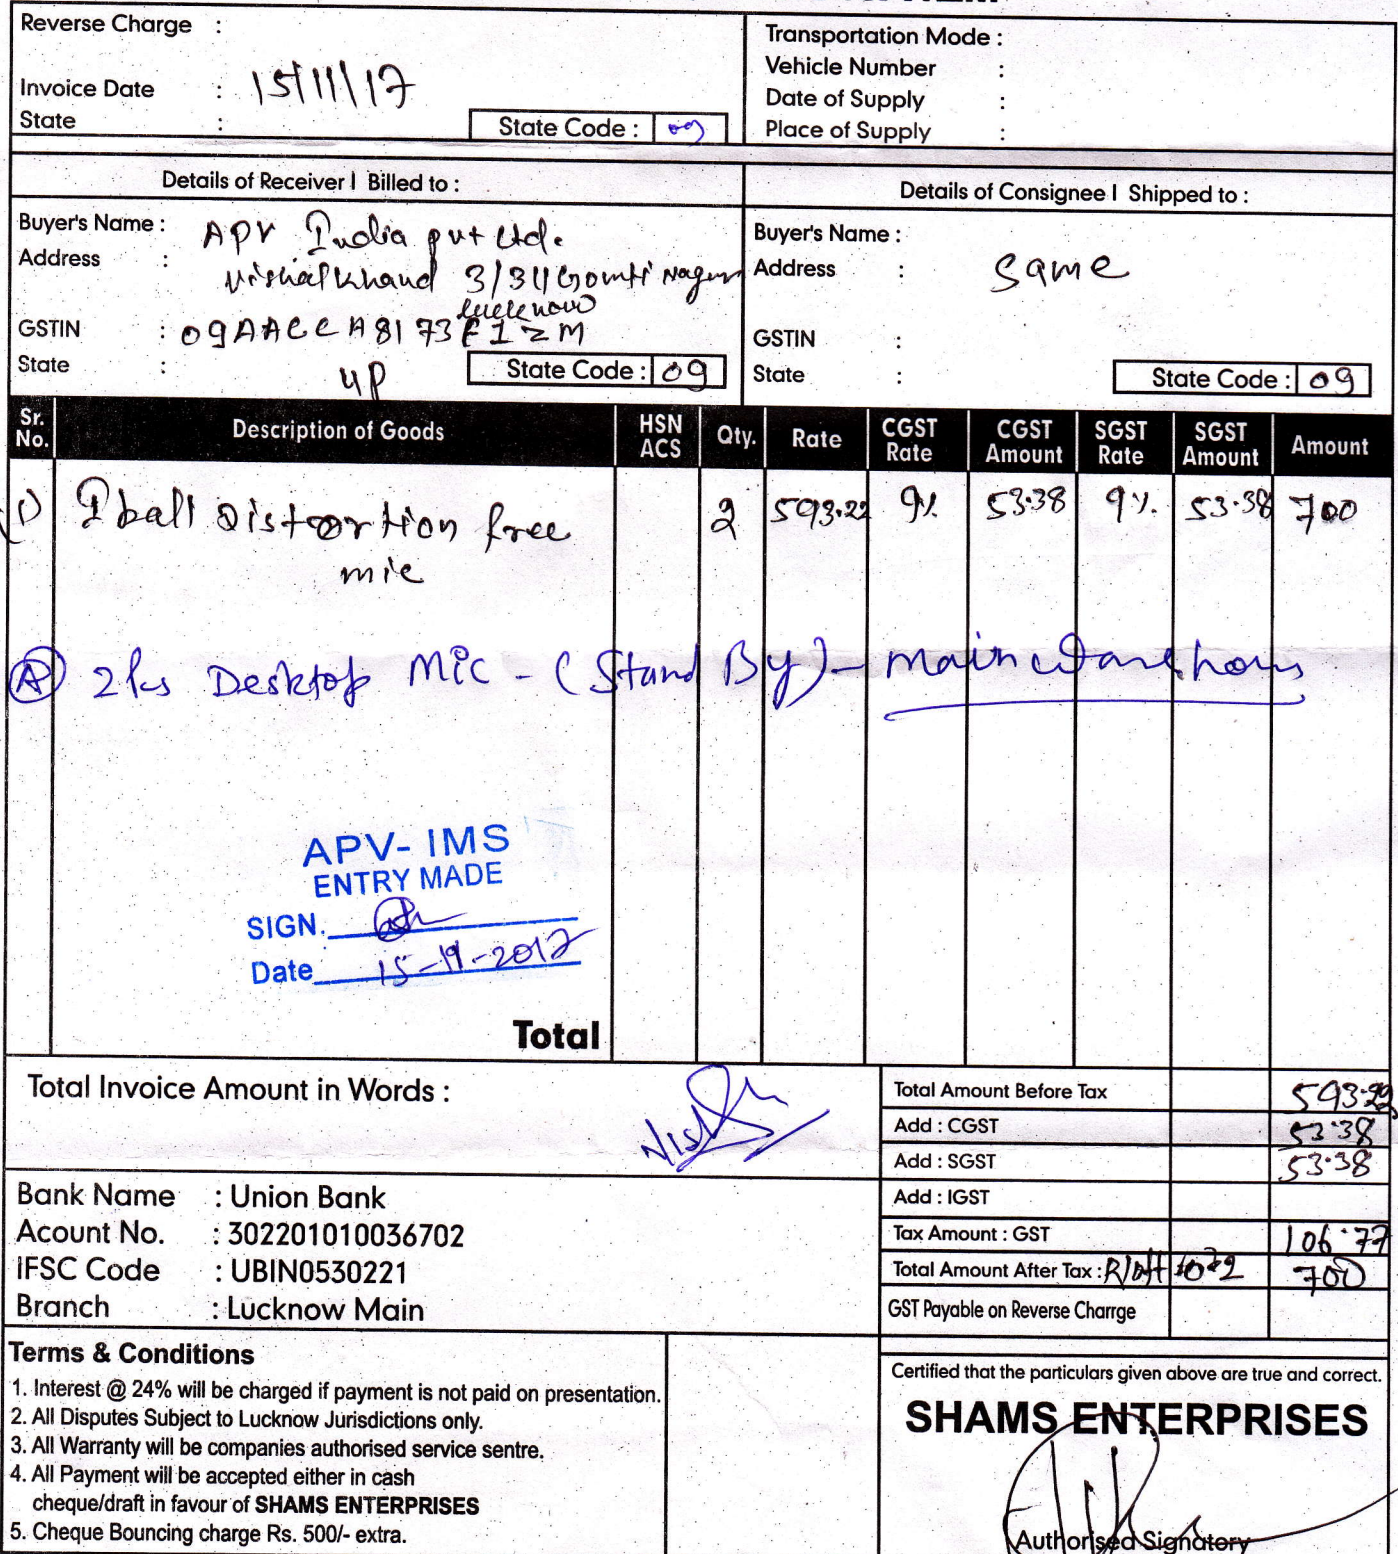 Reverse Charge :
Invoice Date : 15/11/17
State :
State Code : 09
Transportation Mode :
Vehicle Number :
Date of Supply :
Place of Supply :
Details of Receiver I Billed to :
Buyer's Name : APV India pvt Ltd.
Address : Vishal Khand 3/311 Gomti Nagar
lucknow
GSTIN : 09AACCA8173F1ZM
State : UP
State Code : 09
Details of Consignee I Shipped to :
Buyer's Name :
Address : Same
GSTIN :
State :
State Code : 09
Sr. No. Description of Goods HSN ACS Qty. Rate CGST Rate CGST Amount SGST Rate SGST Amount Amount
1) Iball Distoortion free 2 593.22 9% 53.38 9%. 53.38 700
mic
2ks Desktop Mic - (Stand By) - main
APV- IMS
ENTRY MADE
SIGN.
Date 15-11-2017
Total
Total Invoice Amount in Words :
Total Amount Before Tax 593.22
Add : CGST 53.38
Add : SGST 53.38
Add : IGST
Tax Amount : GST 106.77
Total Amount After Tax : R/off 700
GST Payable on Reverse Charrge
Bank Name : Union Bank
Acount No. : 302201010036702
IFSC Code : UBIN0530221
Branch : Lucknow Main
Terms & Conditions
1. Interest @ 24% will be charged if payment is not paid on presentation.
2. All Disputes Subject to Lucknow Jurisdictions only.
3. All Warranty will be companies authorised service sentre.
4. All Payment will be accepted either in cash
cheque/draft in favour of SHAMS ENTERPRISES
5. Cheque Bouncing charge Rs. 500/- extra.
Certified that the particulars given above are true and correct.
SHAMS ENTERPRISES
Authorised Signatory